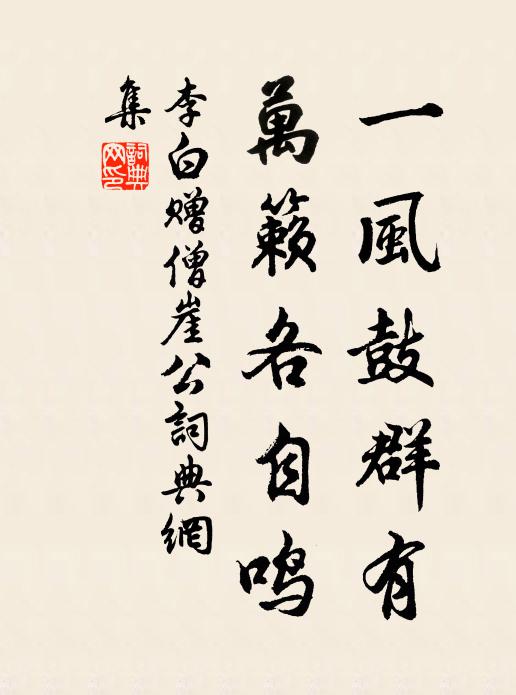 一風鼓群有
萬籟各自鳴
李白贈僧崖公詞典網
集
詞典
网印